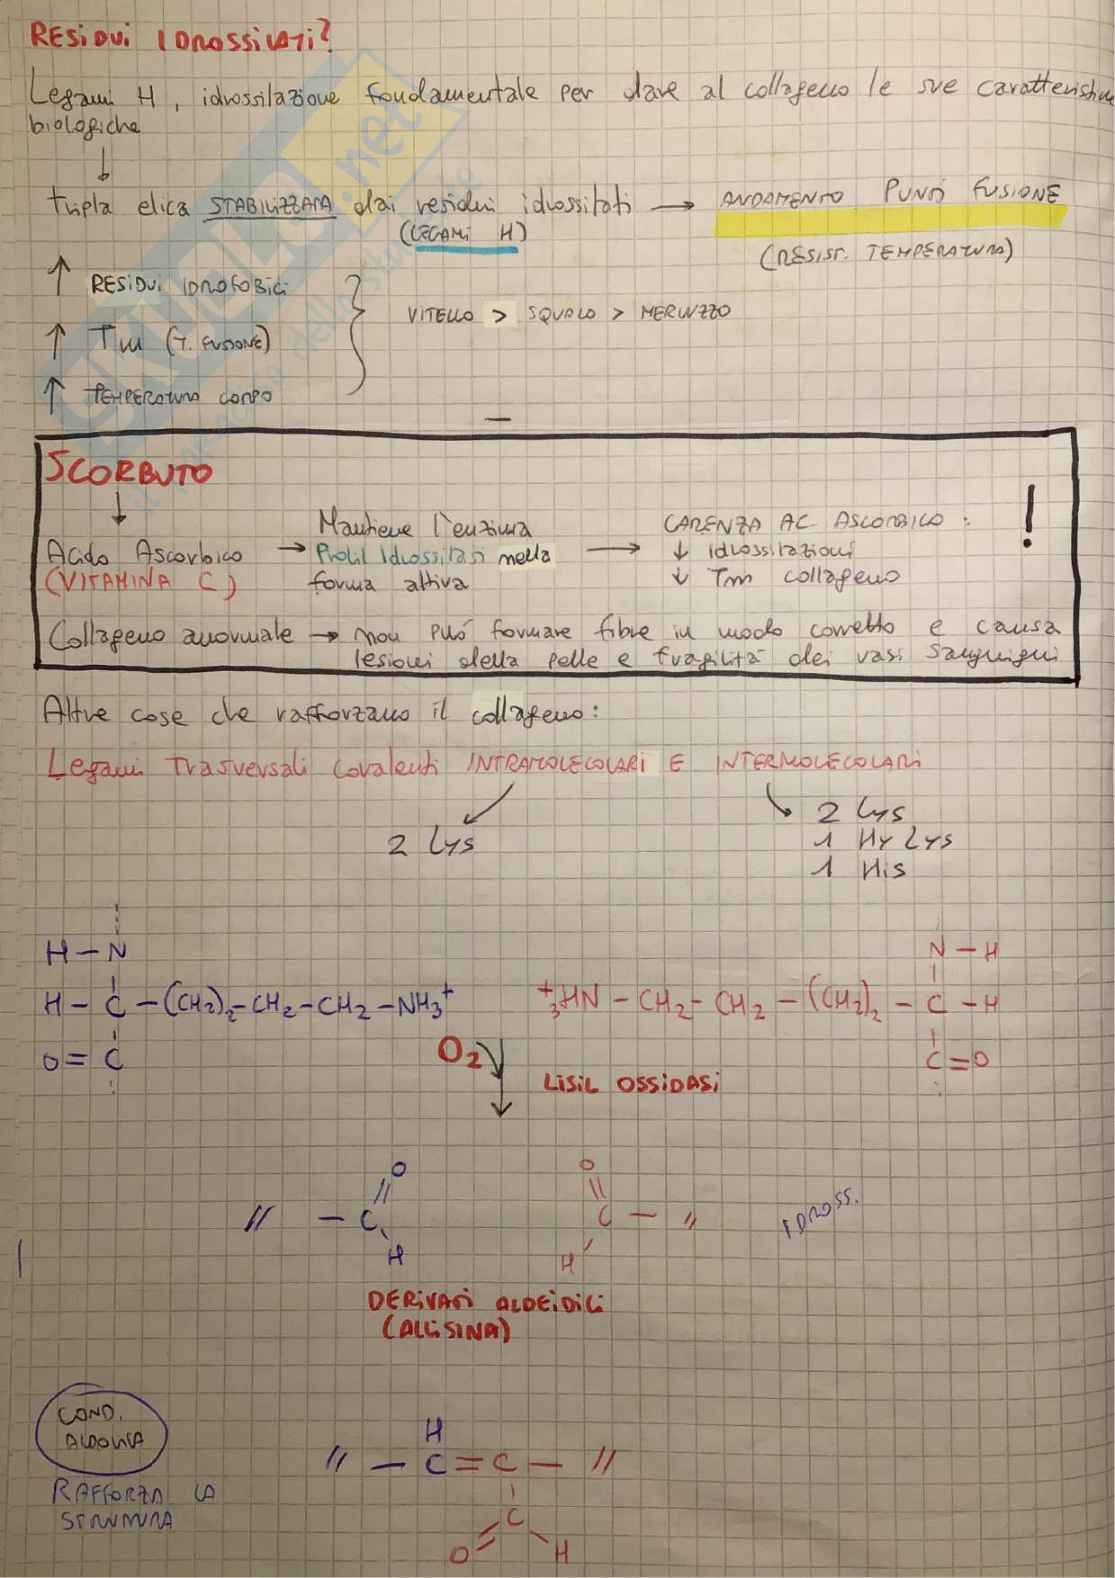 RESIDUI IDROSSILATI?
Legami H, idrossilazione fondamentale per dare al collageno le sue caratteristiche
biologiche
tripla elica STABILIZZATA dai residui idrossilati → ANDAMENTO PUNTI FUSIONE
(LEGAMI H)
(RESIST. TEMPERATURA)
↑ RESIDUI IDROFOBICI
↑ Tm (T. FUSIONE)
↑ TEMPERATURA CORPO
VITELLO > SQUALO > MERLUZZO
SCORBUTO
Acido Ascorbico
(VITAMINA C)
→ Mantiene l'enzima
Prolil Idrossilasi nella
forma attiva
→ CARENZA AC. ASCORBICO:
↓ Idrossilazioni
↓ Tm collageno
!
Collageno anormale → non può formare fibre in modo corretto e causa
lesioni della pelle e fragilità dei vasi sanguigni
Altre cose che rafforzano il collageno:
Legami Trasversali Covalenti INTRAMOLECOLARI E INTERMOLECOLARI
2 Lys
2 Lys
1 Hy Lys
1 His
H-N
H-C-(CH2)2-CH2-CH2-NH3+
O=C
N-H
+3HN-CH2-CH2-(CH2)2-C-H
C=O
O2
LISIL OSSIDASI
O
// -C
H
O
C- //
H
IDROSS.
DERIVATI ALDEIDICI
(ALLISINA)
COND.
ALDOLICA
RAFFORZA LA
STRUTTURA
H
// -C=C- //
C
O H